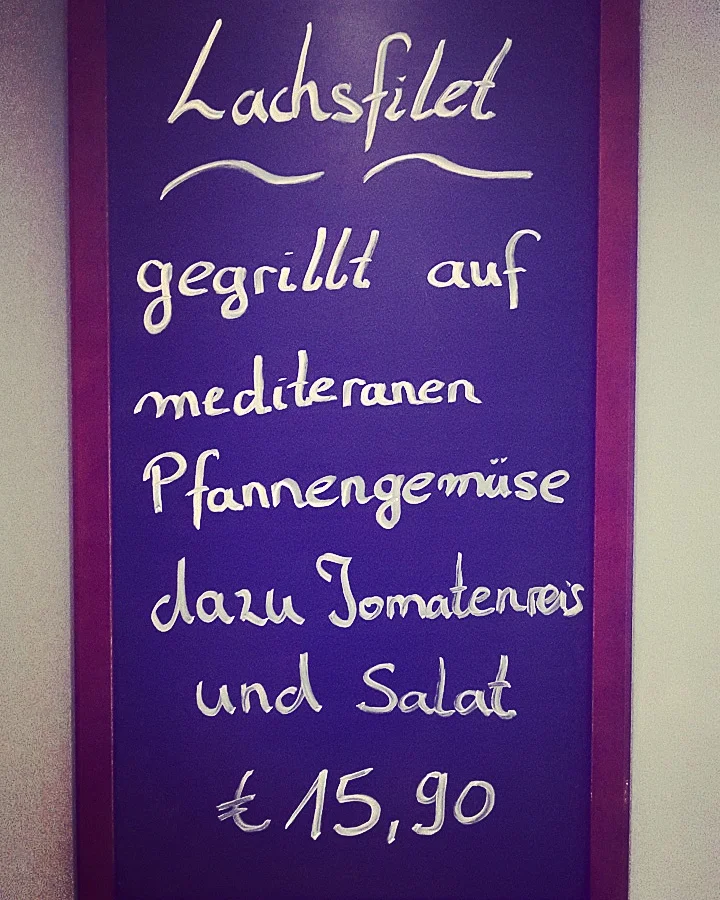 Lachsfilet
gegrillt auf
mediteranen
Pfannengemüse
dazu Tomatenreis
und Salat
€ 15,90